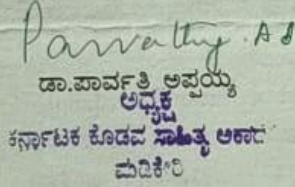 Parvathy. A
ಡಾ.ಪಾರ್ವತಿ ಅಪ್ಪಯ್ಯ
ಅಧ್ಯಕ್ಷ
ಕರ್ನಾಟಕ ಕೊಡವ ಸಾಹಿತ್ಯ ಅಕಾದ
ಮಡಿಕೇರಿ